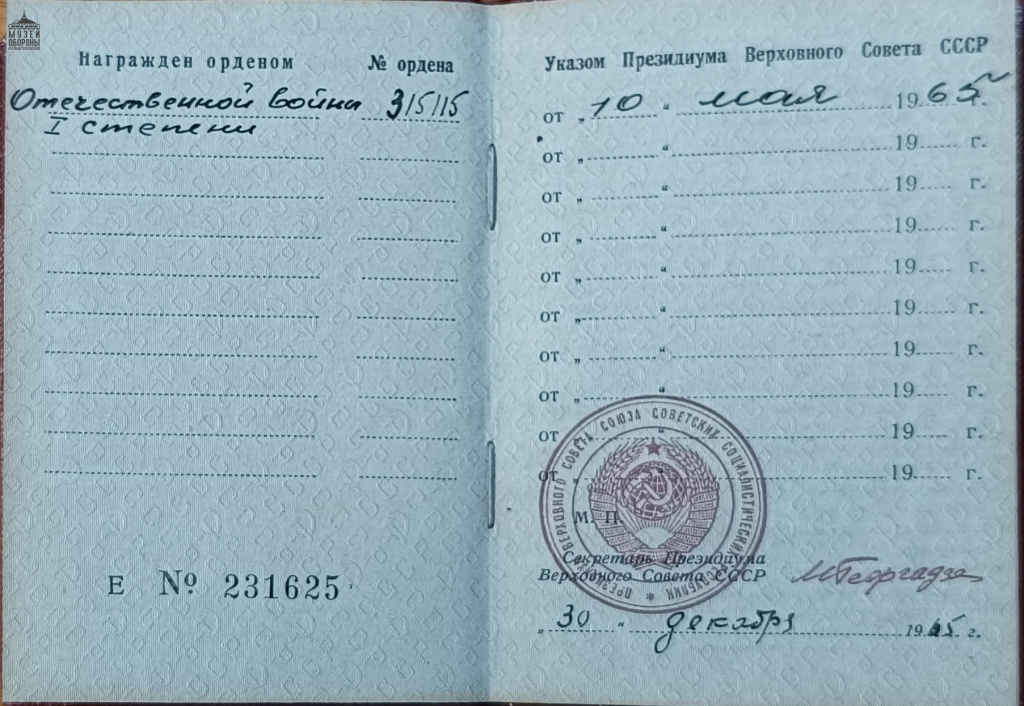 МУЗЕЙ
ОБОРОНЫ
СЕВАСТОПОЛЯ
Награжден орденом № ордена
Отечественной войны 315115
I степени
Е № 231625
Указом Президиума Верховного Совета СССР
от „ 10 “ мая 1965 г.
от „ “ 19 г.
от „ “ 19 г.
от „ “ 19 г.
от „ “ 19 г.
от „ “ 19 г.
от „ “ 19 г.
от „ “ 19 г.
от „ “ 19 г.
от „ “ 19 г.
ПРЕЗИДИУМ ВЕРХОВНОГО СОВЕТА СОЮЗА СОВЕТСКИХ СОЦИАЛИСТИЧЕСКИХ РЕСПУБЛИК
М. П.
Секретарь Президиума
Верховного Совета СССР МГеоргадзе
„ 30 “ декабря 1965 г.